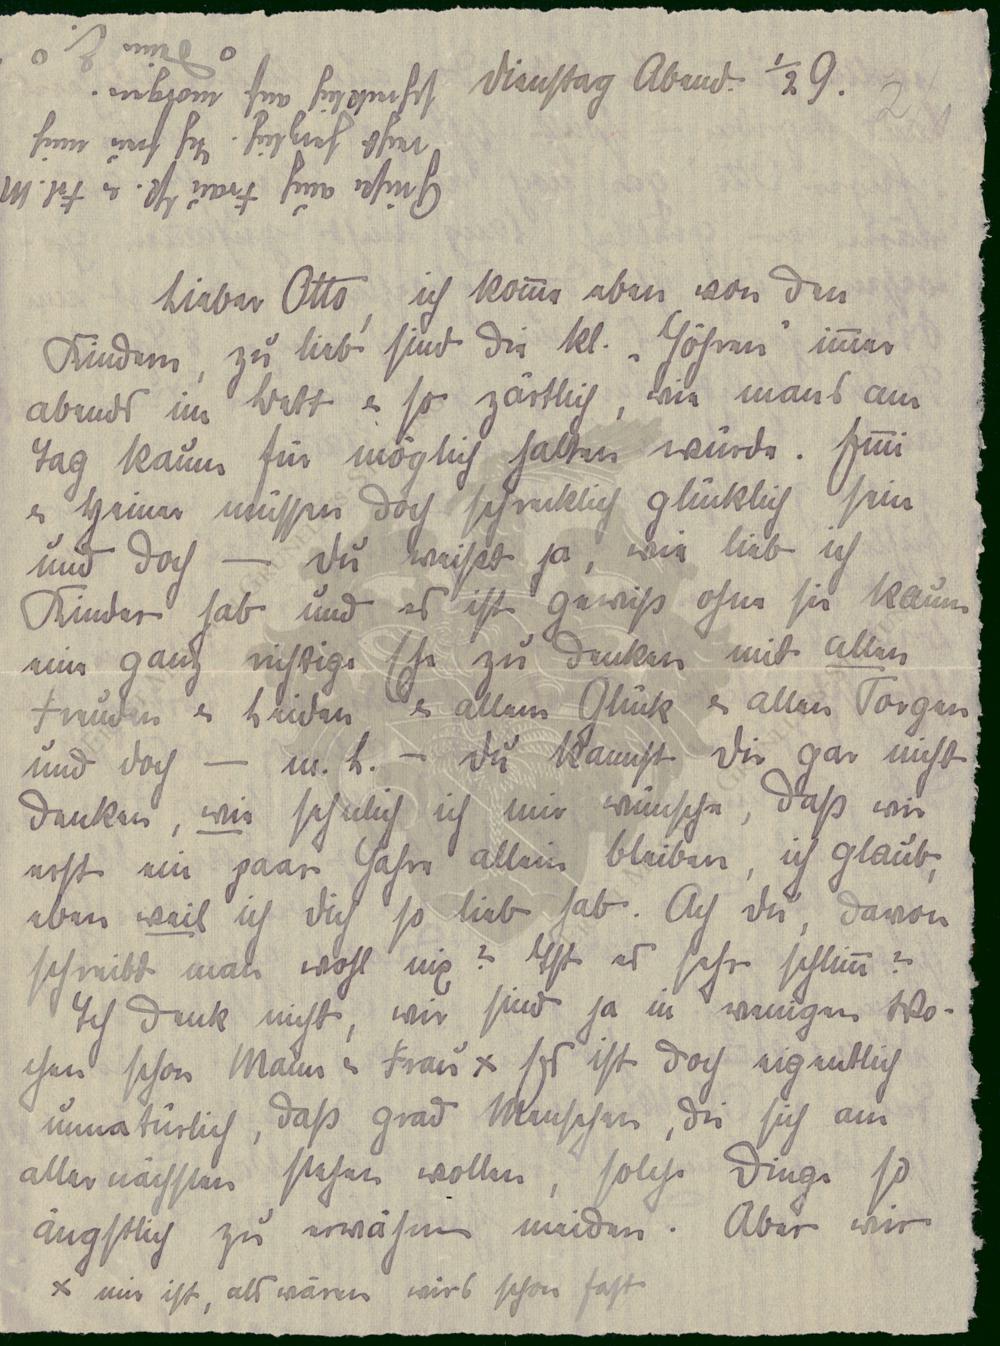 Dienstag Abend. ½9.
2
Lieber Otto, ich komme eben von den
Kindern, zu lieb sind die kl. „Göhren" immer
abends im Bett & so zärtlich, wie mans am
Tag kaum für möglich halten würde. Emmi
& Heiner müssen doch schrecklich glücklich sein
und doch — Du weißt ja, wie lieb ich
Kinder hab und es ist gewiß ohne sie kaum
eine ganz richtige Ehe zu denken mit allen
Freuden & Leiden & allem Glück & allen Sorgen
und doch — m. L. — Du kannst Dir gar nicht
denken, wie sehnlich ich mir wünsche, daß wir
erst ein paar Jahre allein bleiben, ich glaub,
eben weil ich Dich so lieb hab. Ach Du, davon
schreibt man wohl nix? Ist es sehr schlimm?
Ich denk nicht, wir sind ja in wenigen Wo-
chen schon Mann & Frau x Es ist doch eigentlich
unnatürlich, daß grad Menschen, die sich am
allernächsten stehen wollen, solche Dinge so
ängstlich zu erwähnen meiden. Aber wir
x mir ist, als wären wirs schon fast
Grüße auch Frau
recht herzlich. Ich freu mich
schrecklich auf morgen.
Deine